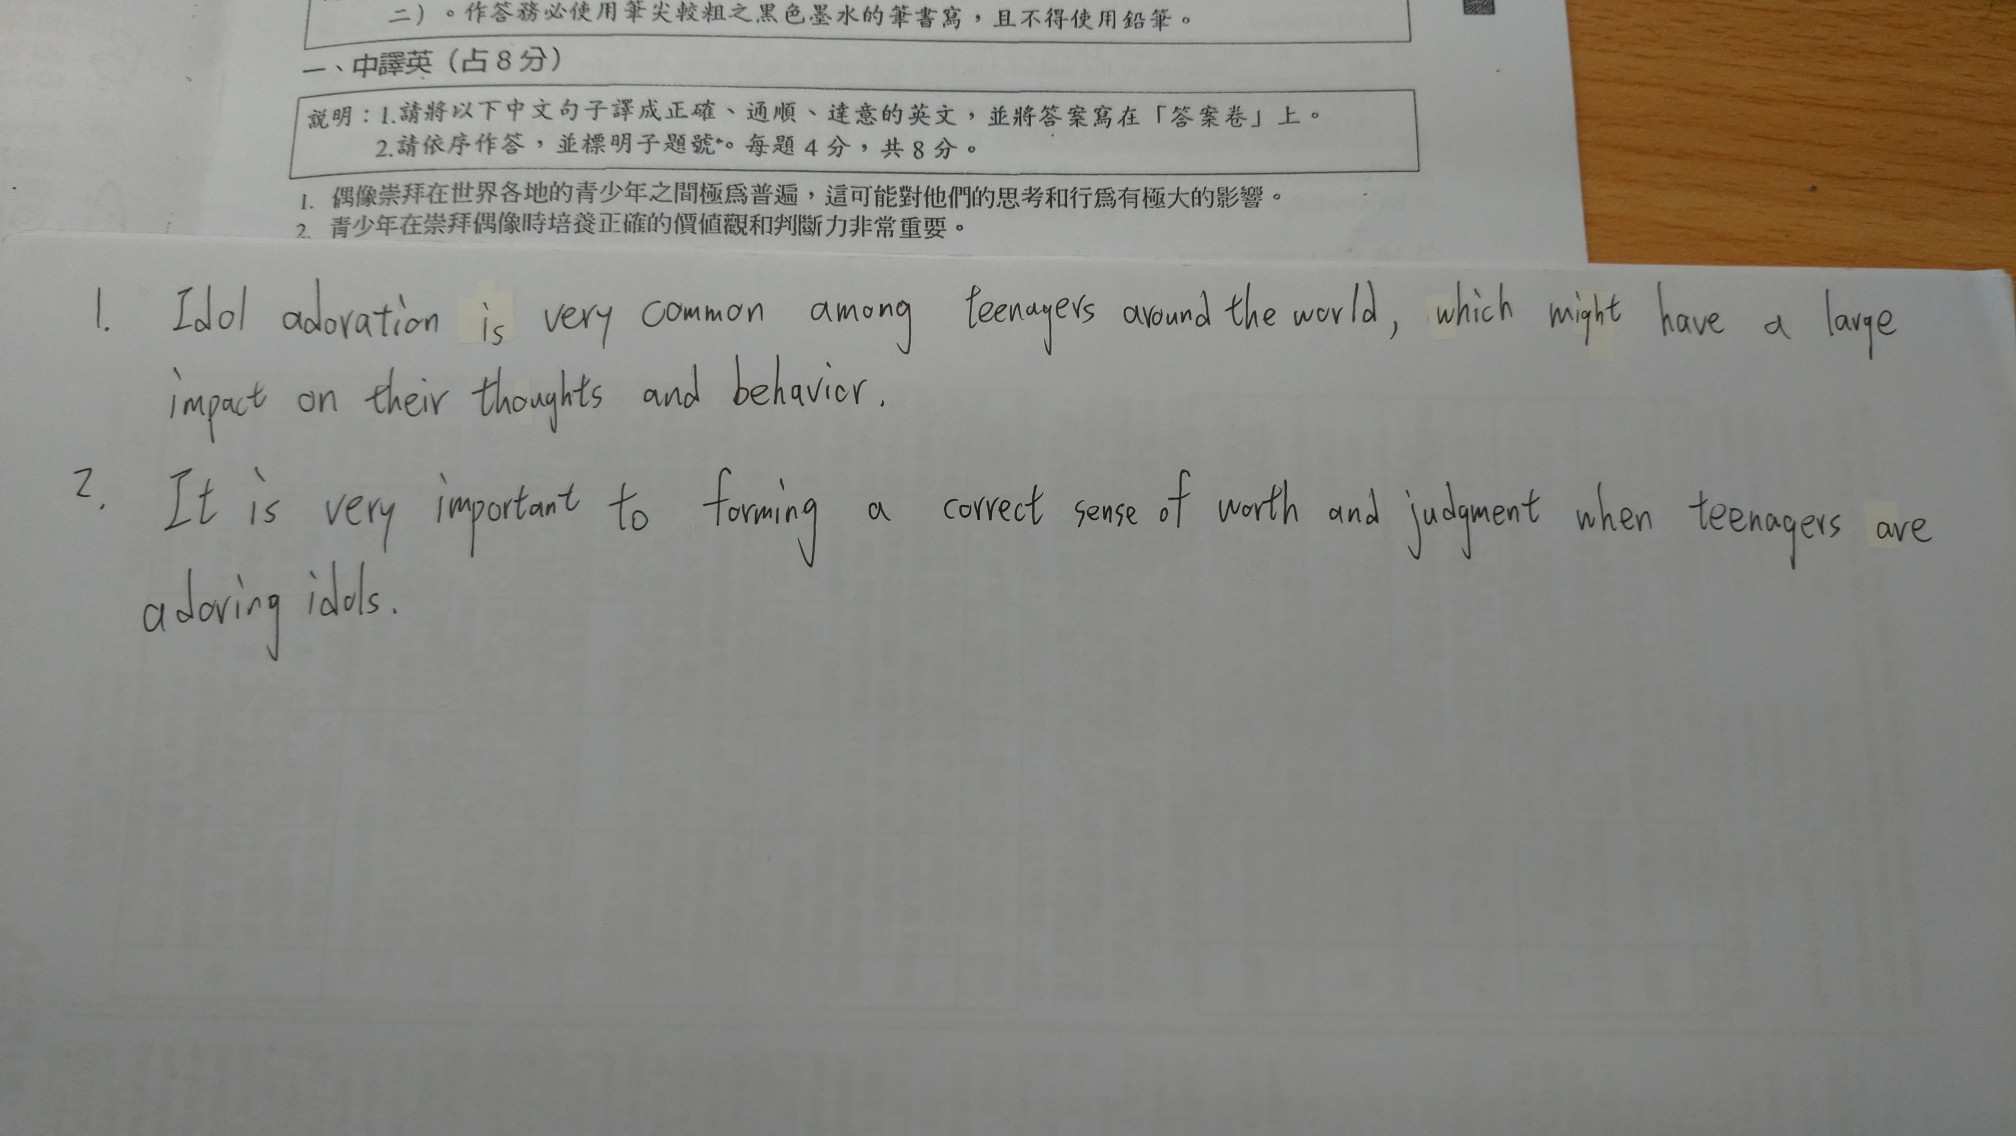 二）。作答務必使用筆尖較粗之黑色墨水的筆書寫，且不得使用鉛筆。
一、中譯英（占8分）
說明：1.請將以下中文句子譯成正確、通順、達意的英文，並將答案寫在「答案卷」上。
2.請依序作答，並標明子題號。每題4分，共8分。
1. 偶像崇拜在世界各地的青少年之間極為普遍，這可能對他們的思考和行為有極大的影響。
2. 青少年在崇拜偶像時培養正確的價值觀和判斷力非常重要。
1. Idol adoration is very common among teenagers around the world, which might have a large
impact on their thoughts and behavior.
2. It is very important to forming a correct sense of worth and judgment when teenagers are
adoring idols.